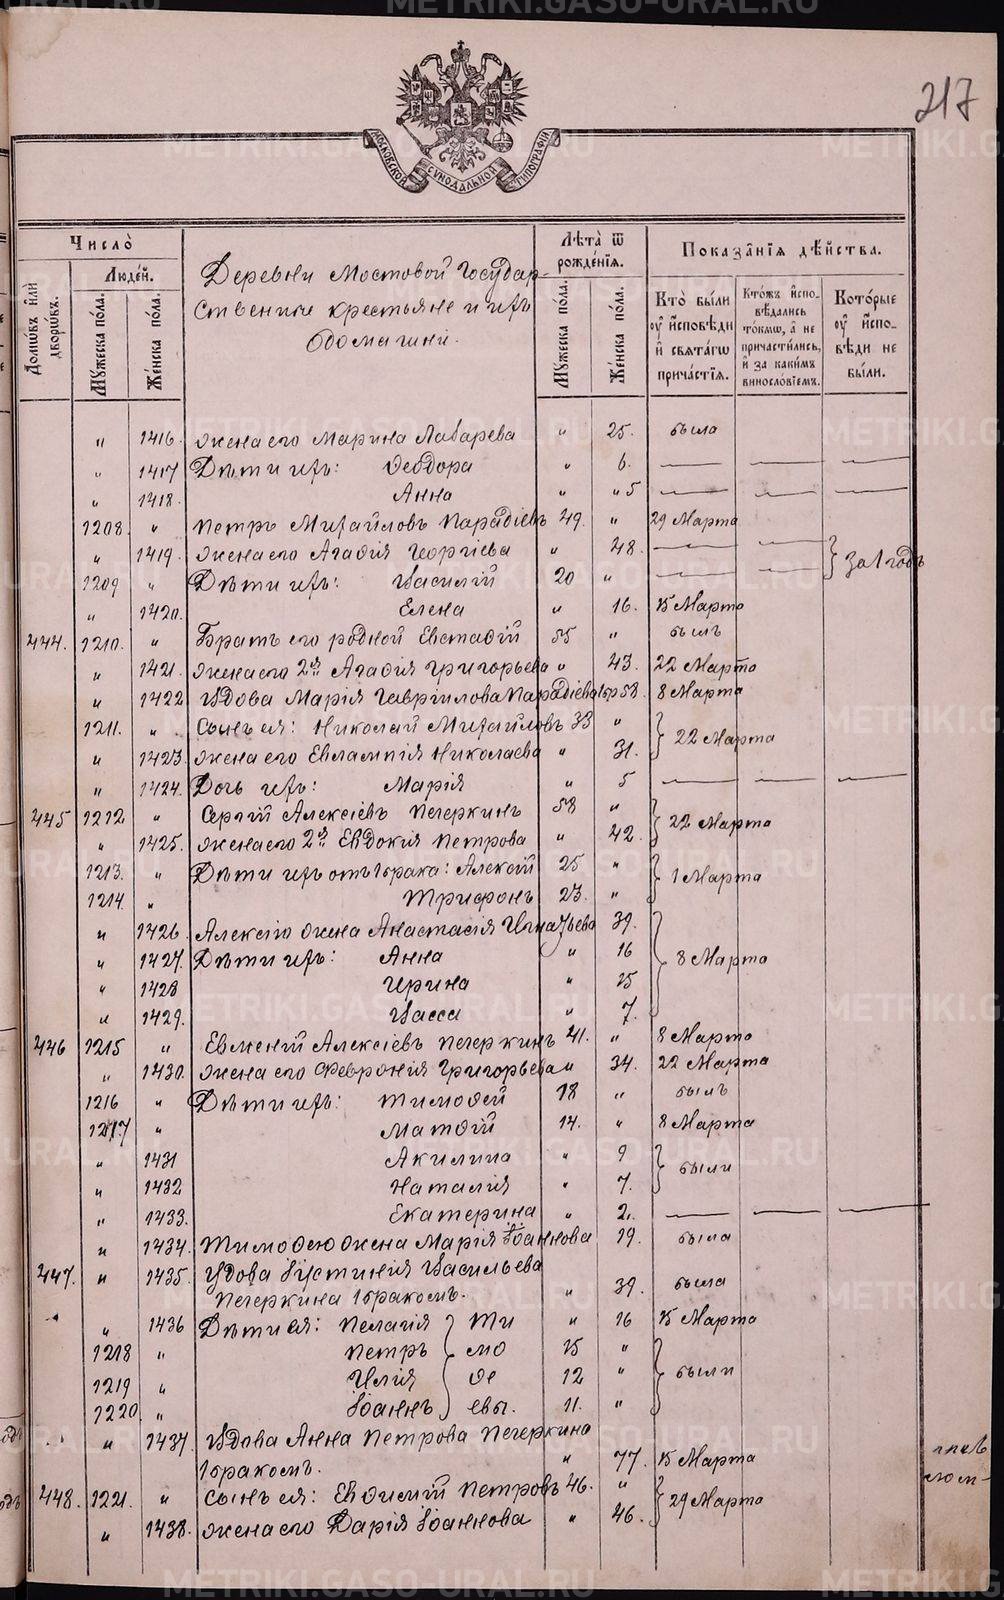 217
МОСКОВСКОЙ СѴНОДАЛЬНОЙ ТИПОГРАФІИ
Число̀
Домѡ́въ и҆лѝ дворѡ́въ.
Люде́й.
Мꙋ́жеска по́ла.
Же́нска по́ла.
Деревни Мостовой Государ-
ственные крестьяне и ихъ
домашніи.
Лѣ́та ѿ рожде́нїѧ.
Мꙋ́жеска по́ла.
Же́нска по́ла.
Показа̑нїѧ дѣ́йства.
Кто̀ бы́ли оу҆ и҆́сповѣди и҆ свѧта́гѡ прича́стїѧ.
Кто́жъ и҆спо- вѣ́дались то́кмѡ, а҆ не причасти́лись, и҆ за каки́мъ винослѡ́вїемъ.
Кото́рые оу҆ и҆́спо- вѣди не бы́ли.
" 1416. жена его Марина Лазарева " 25. была
" 1417 Дѣти ихъ: Ѳеодора " 6. — — —
" 1418. Анна " " 5 — — —
1208. " Петръ Михайловъ Парадіевъ 49. " 29 Марта
" 1419. жена его Агафія Георгіева " 48. — — } за 1 годъ
1209 " Дѣти ихъ: Василій 20 " — —
" 1420. Елена " 16. 15 Марта
444. 1210. " Братъ его родной Евстафій 55 " былъ
" 1421. жена его 2я Агафія Григорьева " 43. 22 Марта
" 1422 Вдова Марія Гавріилова Парадіева 1бр 58. 8 Марта
1211. " Сынъ ея: Николай Михайловъ 33 " } 22 Марта
" 1423. жена его Евлампія Николаева " 31.
" 1424. Дочь ихъ: Марія " 5 — — —
445 1212 " Сергій Алексіевъ Печеркинъ 58 " } 22 Марта
" 1425. жена его 2я Евдокія Петрова " 42.
1213. " Дѣти ихъ отъ 1 брака: Алексій 25 " } 1 Марта
1214. " Трифонъ 23. "
" 1426. Алексію жена Анастасія Игнатьева 39. } 8 Марта
" 1427. Дѣти ихъ: Анна " 16
" 1428 Ирина " 15
" 1429. Васса " 7.
446 1215 " Евмений Алексіевъ Печеркинъ 41. " 8 Марта
" 1430. жена его Февронія Григорьева " 34. 22 Марта
1216 " Дѣти ихъ: Тимоѳей 18 " былъ
1217 " Матѳій 14. " 8 Марта
" 1431 Акилина " 9 } были
" 1432 Наталія " 7.
" 1433. Екатерина " 2. — — —
" 1434. Тимоѳею жена Марія Іоаннова 19. была
447. " 1435. Вдова Іустинія Васильева
Печеркина 1 бракомъ. " 39. была
" 1436 Дѣти ея: Пелагія } Ти " 16 15 Марта
1218 " Петръ мо 15 " } были
1219 " Илія ѳе 12 "
1220. " Іоаннъ евы. 11. "
" 1437. Вдова Анна Петрова Печеркина
1 бракомъ. " 77. 15 Марта
448. 1221. " Сынъ ея: Евѳимій Петровъ 46. " } 29 Марта
" 1438. жена его Дарія Іоаннова " 46.
METRIKI.GASO-URAL.RU